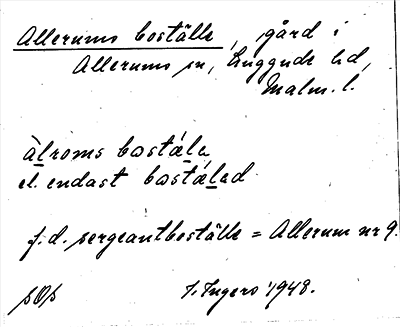 Allerums boställe, gård i
Allerums sn, Luggude hd,
Malm. l.
àlroms bostála
el. endast bostálad
f. d. sergeantboställe = Allerum nr 9.
I. Ingers 1948.